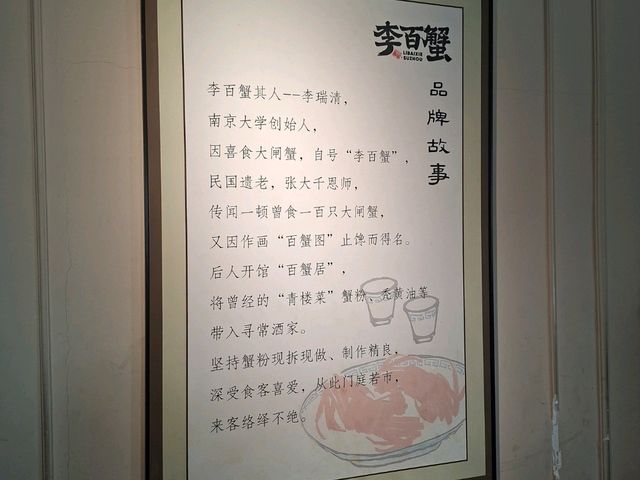 李百蟹
LIBAIXIE
SUZHOU
品牌故事
李百蟹其人--李瑞清，
南京大学创始人，
因喜食大闸蟹，自号“李百蟹”，
民国遗老，张大千恩师，
传闻一顿曾食一百只大闸蟹，
又因作画“百蟹图”止馋而得名。
后人开馆“百蟹居”，
将曾经的“青楼菜”蟹粉、秃黄油等
带入寻常酒家。
坚持蟹粉现拆现做、制作精良，
深受食客喜爱，从此门庭若市，
来客络绎不绝。